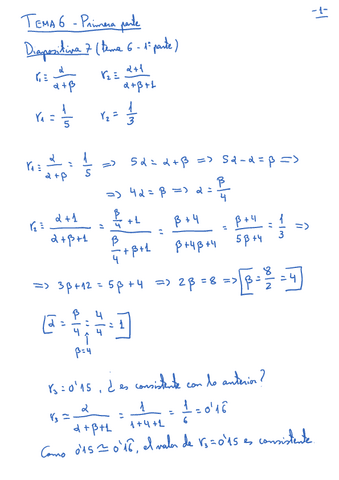 -1-
TEMA 6 - Primera parte
Diapositiva 7 (tema 6 - 1ª parte)
r₁ ≡ α/(α+β)   r₂ ≡ (α+1)/(α+β+1)
r₁ = 1/5   r₂ = 1/3
r₁ ≡ α/(α+β) = 1/5 => 5α = α+β => 5α-α = β =>
=> 4α = β => α = β/4
r₂ ≡ (α+1)/(α+β+1) = (β/4+1)/(β/4+β+1) = (β+4)/(β+4β+4) = (β+4)/(5β+4) = 1/3 =>
=> 3β+12 = 5β+4 => 2β = 8 => β = 8/2 = 4
α = β/4 = 4/4 = 1
↑
β=4
r₃ = 0'15, ¿es consistente con lo anterior?
r₃ ≡ α/(α+β+1) = 1/(1+4+1) = 1/6 = 0'16̂
Como 0'15 ≅ 0'16̂, el valor de r₃ = 0'15 es consistente